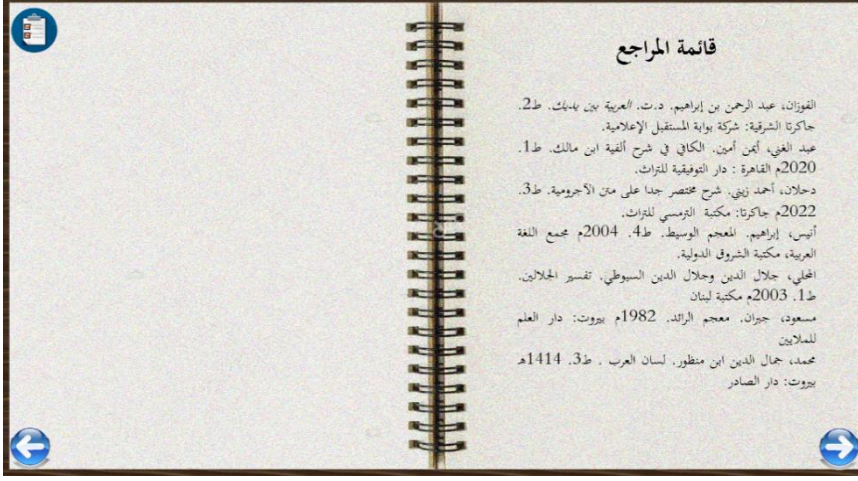 قائمة المراجع
الفوزان، عبد الرحمن بن إبراهيم. د.ت. العربية بين يديك. ط2.
جاكرتا الشرقية: شركة بوابة المستقبل الإعلامية.
عبد الغني، أيمن أمين. الكافي في شرح ألفية ابن مالك. ط1.
2020م القاهرة : دار التوفيقية للتراث.
دحلان، أحمد زيني. شرح مختصر جدا على متن الآجرومية. ط3.
2022م جاكرتا: مكتبة الترمسي للتراث.
أنيس، إبراهيم. المعجم الوسيط. ط4. 2004م مجمع اللغة
العربية، مكتبة الشروق الدولية.
المحلي، جلال الدين وجلال الدين السيوطي. تفسير الجلالين.
ط1. 2003م مكتبة لبنان
مسعود، جبران. معجم الرائد. 1982م بيروت: دار العلم
للملايين
محمد، جمال الدين ابن منظور. لسان العرب . ط3. 1414هـ
بيروت: دار الصادر